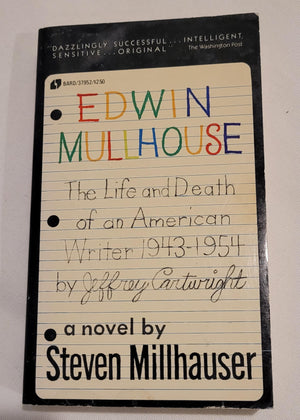 "DAZZLINGLY SUCCESSFUL...INTELLIGENT,
SENSITIVE...ORIGINAL" The Washington Post
BARD/37952/$2.50
EDWIN
MULLHOUSE
The Life and Death
of an American
Writer 1943-1954
by Jeffrey Cartwright
a novel by
Steven Millhauser